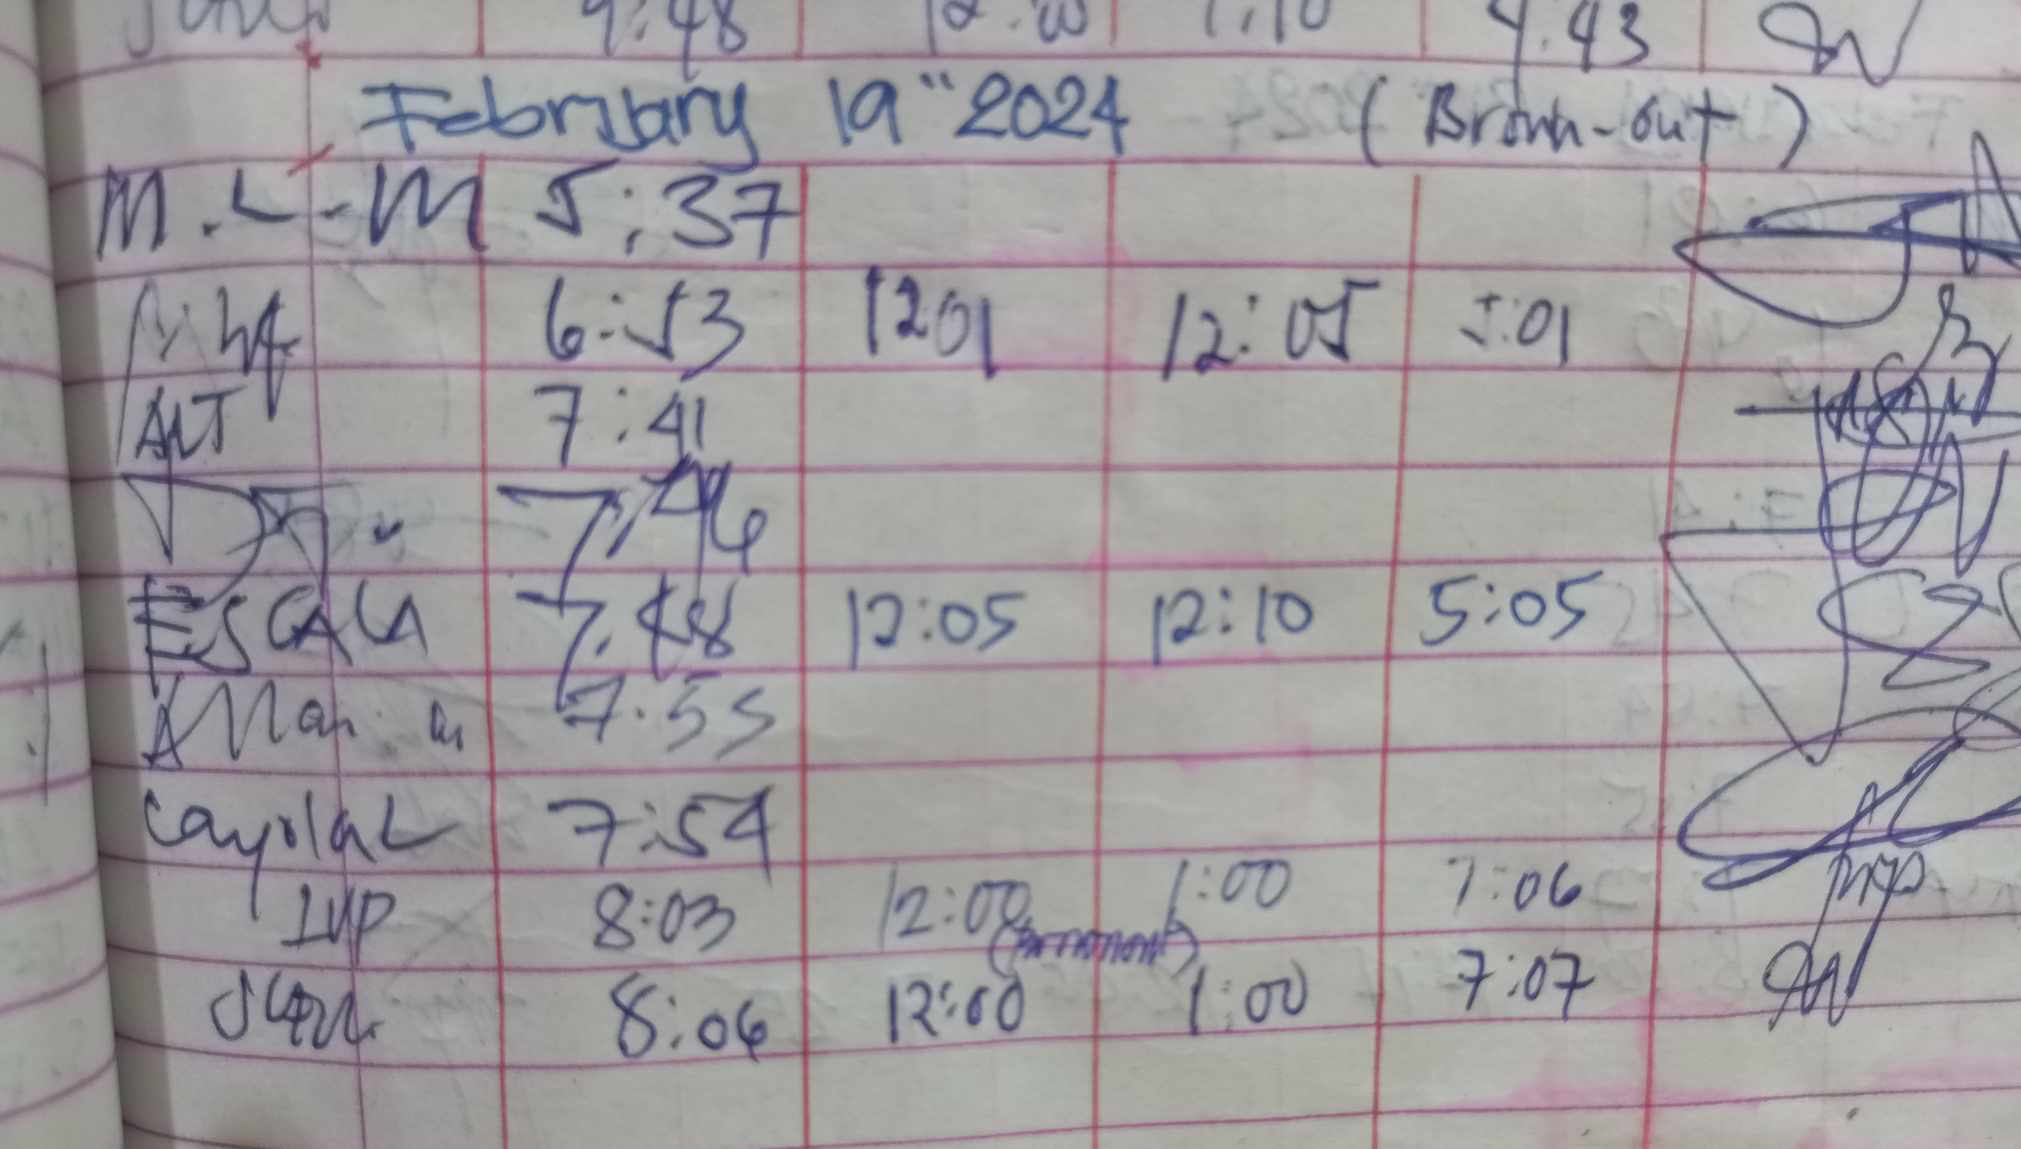 9:48 12:00 1:10 4:43
February 19" 2024 (Brown-out)
M.L.M 5:37
6:53 1201 12:05 5:01
ALT 7:41
7:46
ESCALA 7:48 12:05 12:10 5:05
7:55
Cayolal 7:54
IVP 8:03 12:00 1:00 7:06
8:06 12:00 1:00 7:07